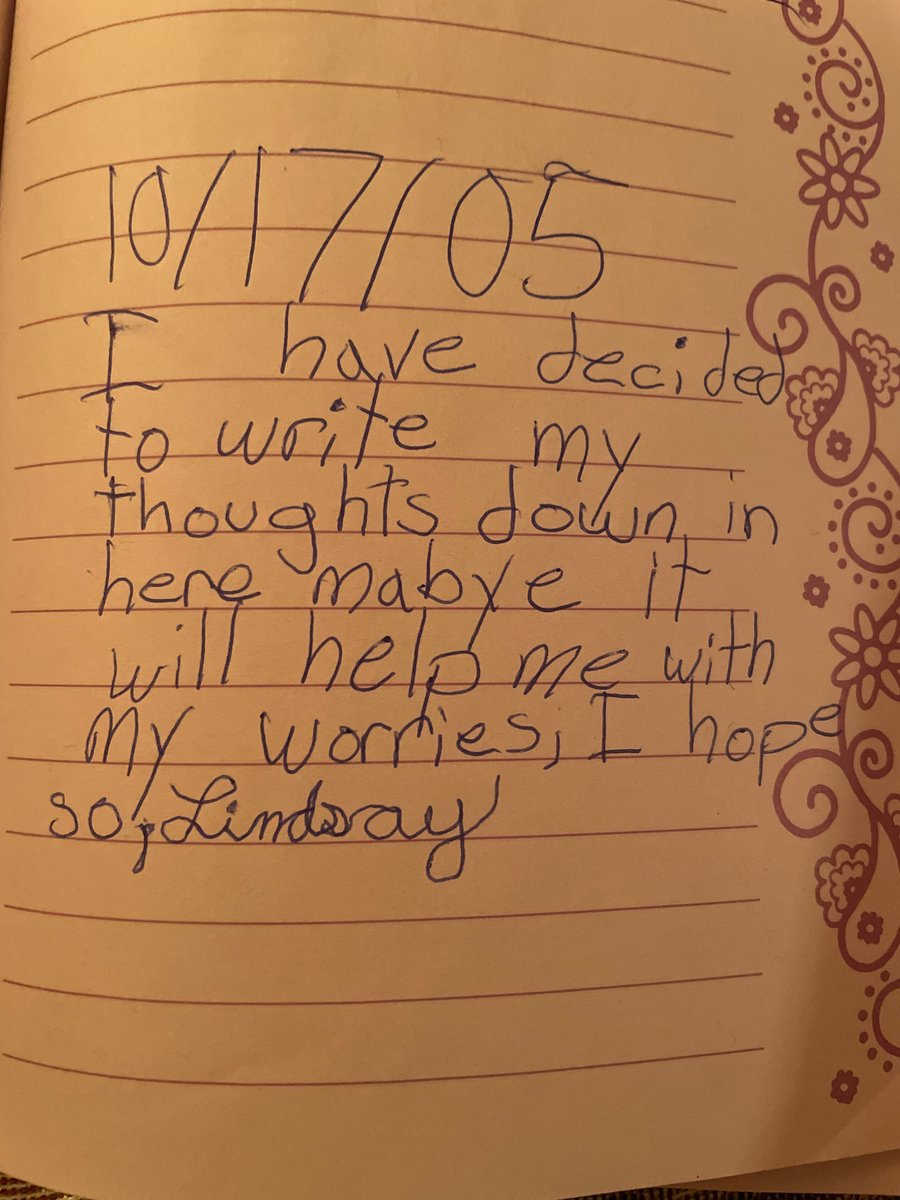 10/17/05
I have decided
to write my
thoughts down in
here mabye it
will help me with
my worries, I hope
so, Lindsay